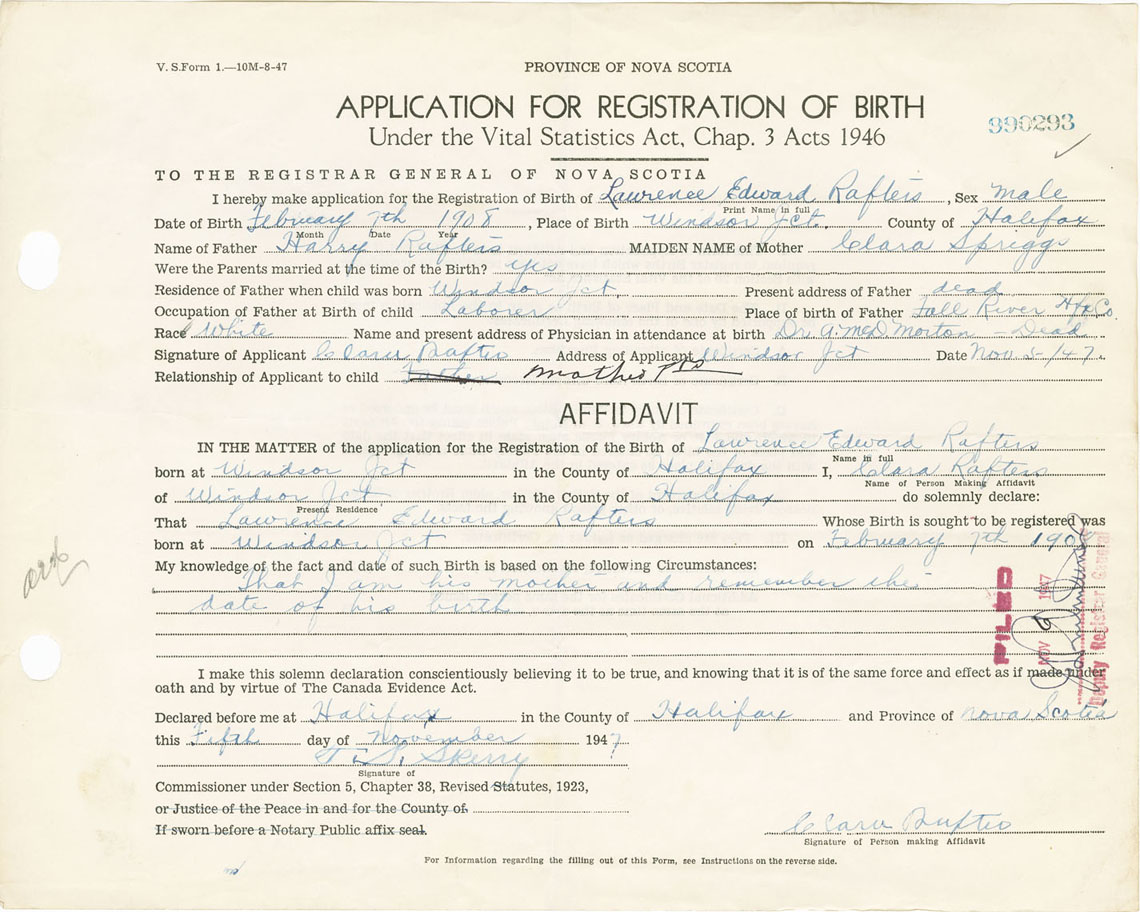 V. S.Form 1.—10M-8-47
PROVINCE OF NOVA SCOTIA
APPLICATION FOR REGISTRATION OF BIRTH
Under the Vital Statistics Act, Chap. 3 Acts 1946
990293
TO THE REGISTRAR GENERAL OF NOVA SCOTIA
I hereby make application for the Registration of Birth of Lawrence Edward Rafters, Sex Male
Print Name in full
Date of Birth February 7th 1908, Place of Birth Windsor Jct. County of Halifax
Month Date Year
Name of Father Harry Rafters MAIDEN NAME of Mother Clara Spriggs
Were the Parents married at the time of the Birth? yes
Residence of Father when child was born Windsor Jct. Present address of Father dead
Occupation of Father at Birth of child Laborer Place of birth of Father Fall River Hfx Co.
Race White Name and present address of Physician in attendance at birth Dr. G. McD. Morton - Dead
Signature of Applicant Clara Rafters Address of Applicant Windsor Jct Date Nov. 5-/47.
Relationship of Applicant to child Father Mother
AFFIDAVIT
IN THE MATTER of the application for the Registration of the Birth of Lawrence Edward Rafters
Name in full
born at Windsor Jct in the County of Halifax I, Clara Rafters
Name of Person Making Affidavit
of Windsor Jct in the County of Halifax do solemnly declare:
Present Residence
That Lawrence Edward Rafters Whose Birth is sought to be registered was
born at Windsor Jct on February 7th 1908
My knowledge of the fact and date of such Birth is based on the following Circumstances:
That I am his mother and remember the
date of his birth
FILED
NOV 1947
Deputy Registrar General
I make this solemn declaration conscientiously believing it to be true, and knowing that it is of the same force and effect as if made under
oath and by virtue of The Canada Evidence Act.
Declared before me at Halifax in the County of Halifax and Province of Nova Scotia
this Fifth day of November 1947
Skerry
Signature of
Commissioner under Section 5, Chapter 38, Revised Statutes, 1923,
or Justice of the Peace in and for the County of
If sworn before a Notary Public affix seal.
Clara Rafters
Signature of Person making Affidavit
For Information regarding the filling out of this Form, see Instructions on the reverse side.